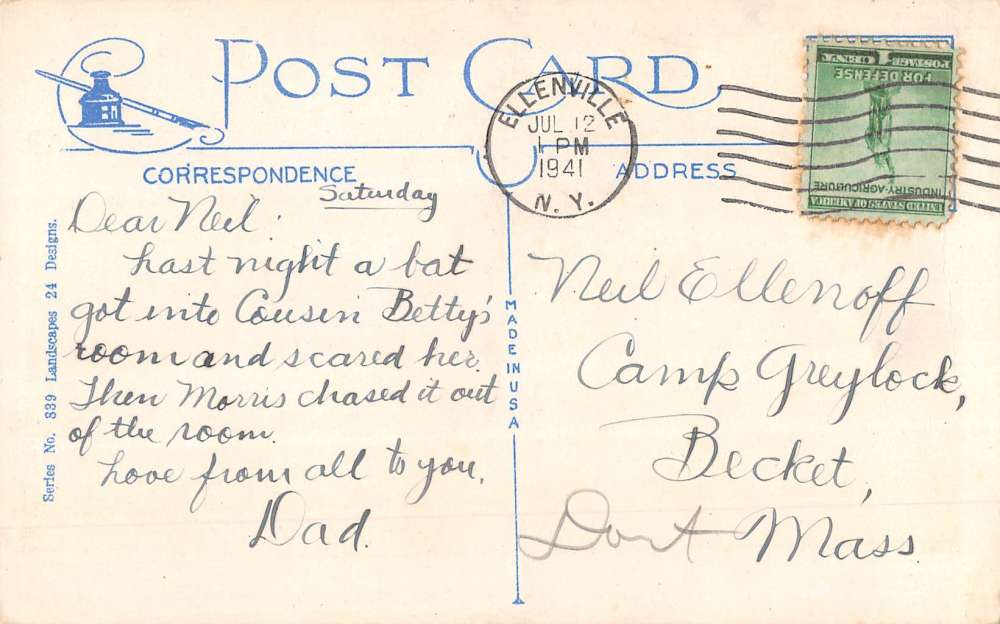 POST CARD
CORRESPONDENCE
ADDRESS
ELLENVILLE
JUL 12
1 PM
1941
N. Y.
1 CENT
POSTAGE
FOR DEFENSE
INDUSTRY-AGRICULTURE
UNITED STATES OF AMERICA
Series No. 339 Landscapes 24 Designs.
MADE IN USA
Saturday
Dear Neil.
Last night a bat
got into Cousin Betty's
room and scared her.
Then Morris chased it out
of the room.
Love from all to you,
Dad.
Neil Ellenoff
Camp Greylock,
Becket,
Mass.